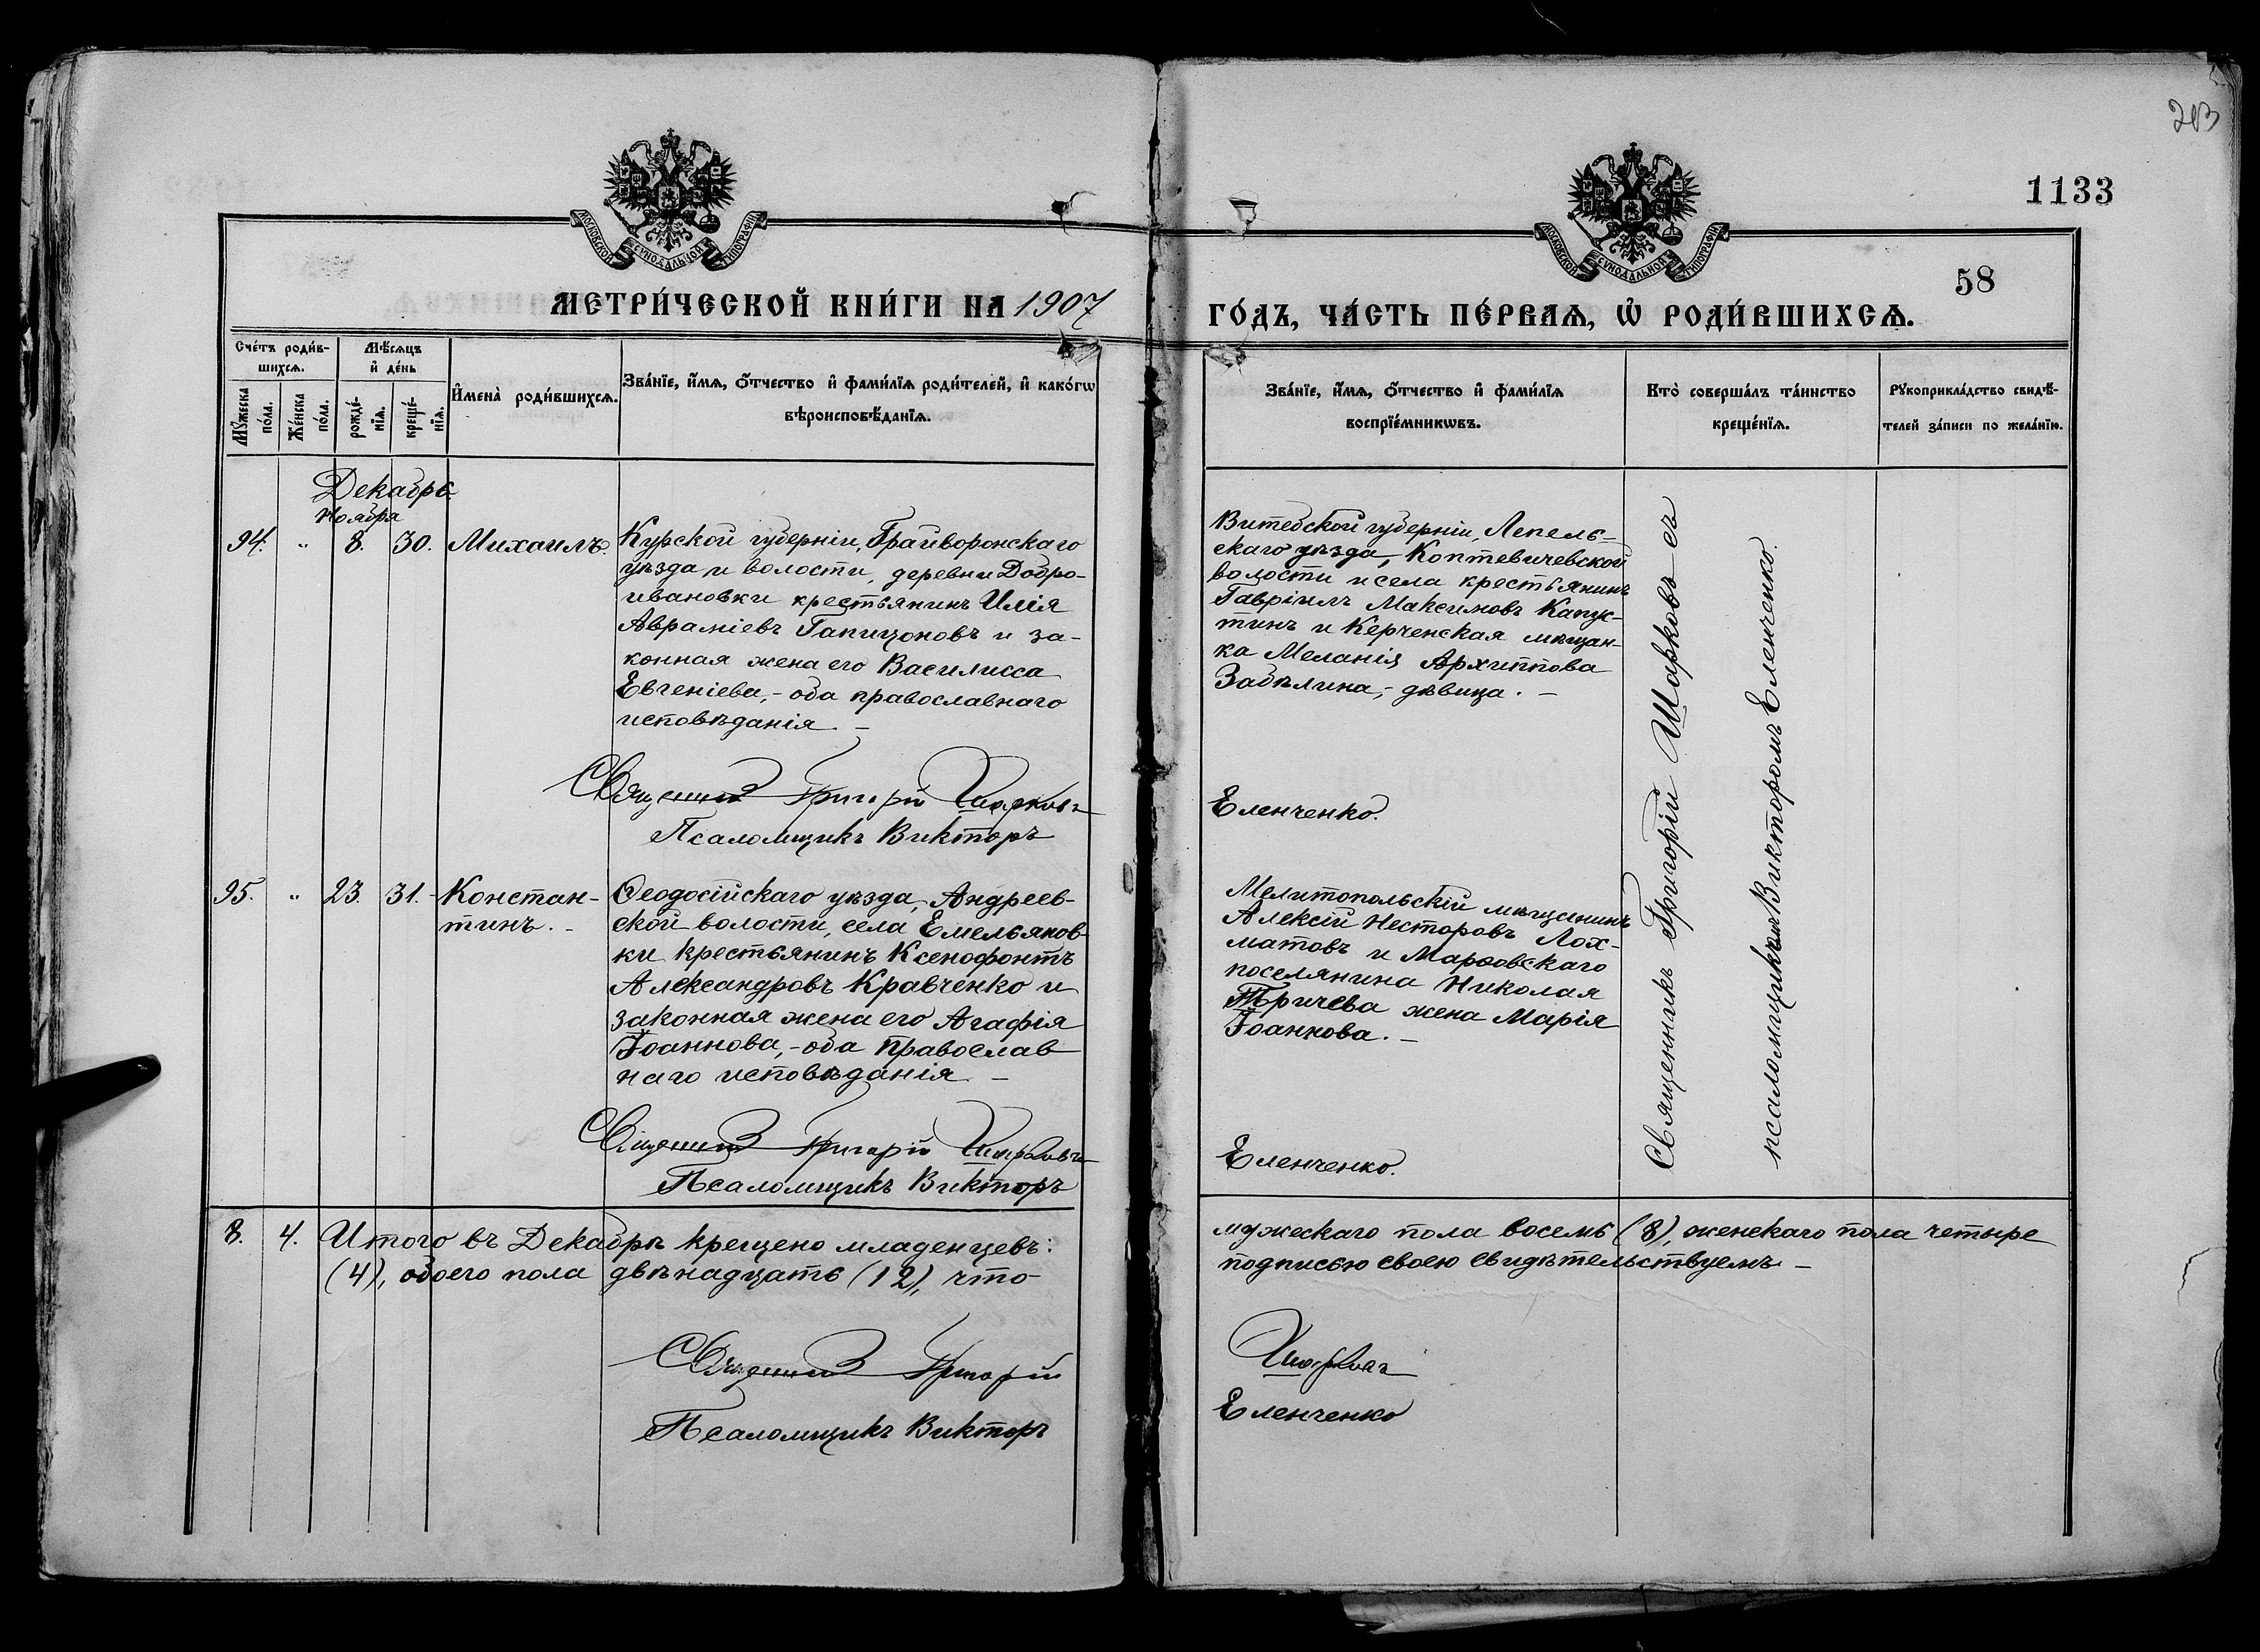 203
1133
58
МОСКОВСКОЙ СѴНОДАЛЬНОЙ ТИПОГРАФІИ
МОСКОВСКОЙ СѴНОДАЛЬНОЙ ТИПОГРАФІИ
МЕТРИ́ЧЕСКОЙ КНИ́ГИ НА 1907
ГО́ДЪ, ЧА́СТЬ ПЕ́РВАѦ, Ѽ РОДИ́ВШИХСѦ.
Сче́тъ роди́в-
шихсѧ.
Мꙋ́жеска
по́ла.
Же́нска
по́ла.
Мѣ́сѧцъ
и҆ де́нь
рожде́-
нїѧ.
креще́-
нїѧ.
И҆мена̀ роди́вшихсѧ.
Зва́нїе, и҆́мѧ, ѻ҆́тчество и҆ фами́лїѧ роди́телей, и҆ како́гѡ
вѣроисповѣ́данїѧ.
Зва́нїе, и҆́мѧ, ѻ҆́тчество и҆ фами́лїѧ
воспрїе́мникѡвъ.
Кто̀ соверша́лъ та́инство
креще́нїѧ.
Рꙋкоприкла́дство свидѣ́-
телей за́писи по жела́нїю.
Декабрь
Ноября
94. " 8. 30. Михаилъ.
Курской губерніи, Грайворонскаго
уѣзда и волости, деревни Добро-
ивановки крестьянинъ Илія
Авраміевъ Гапицоновъ и за-
конная жена его Василисса
Евгеніева, - оба православнаго
исповѣданія. -
Священникъ Григорій Шарковъ
Псаломщикъ Викторъ
Витебской губерніи, Лепель-
скаго уѣзда, Коптевичевской
волости и села крестьянинъ
Гавріилъ Максимовъ Капус-
тинъ и Керченская мѣщан-
ка Меланія Архиппова
Забѣлина, - дѣвица. -
Еленченко.
Священникъ Григорій Шарковъ съ
псаломщикомъ Викторомъ Еленченко.
95. " 23. 31. Констан-
тинъ. -
Ѳеодосійскаго уѣзда, Андреев-
ской волости, села Емельянов-
ки крестьянинъ Ксенофонтъ
Александровъ Кравченко и
законная жена его Агафія
Іоаннова, - оба православ
наго исповѣданія -
Священникъ Григорій Шарковъ
Псаломщикъ Викторъ
Мелитопольскій мѣщанинъ
Алексій Несторовъ Лох-
матовъ и Марѳовскаго
поселянина Николая
Тричева жена Марія
Іоаннова. -
Еленченко.
8. 4. Итого въ Декабрѣ крещено младенцевъ:
(4), обоего пола двѣнадцать (12), что
мужескаго пола восемь (8), женскаго пола четыре
подписью своею свидѣтельствуемъ. -
Священникъ Григорій
Псаломщикъ Викторъ
Шарковъ
Еленченко